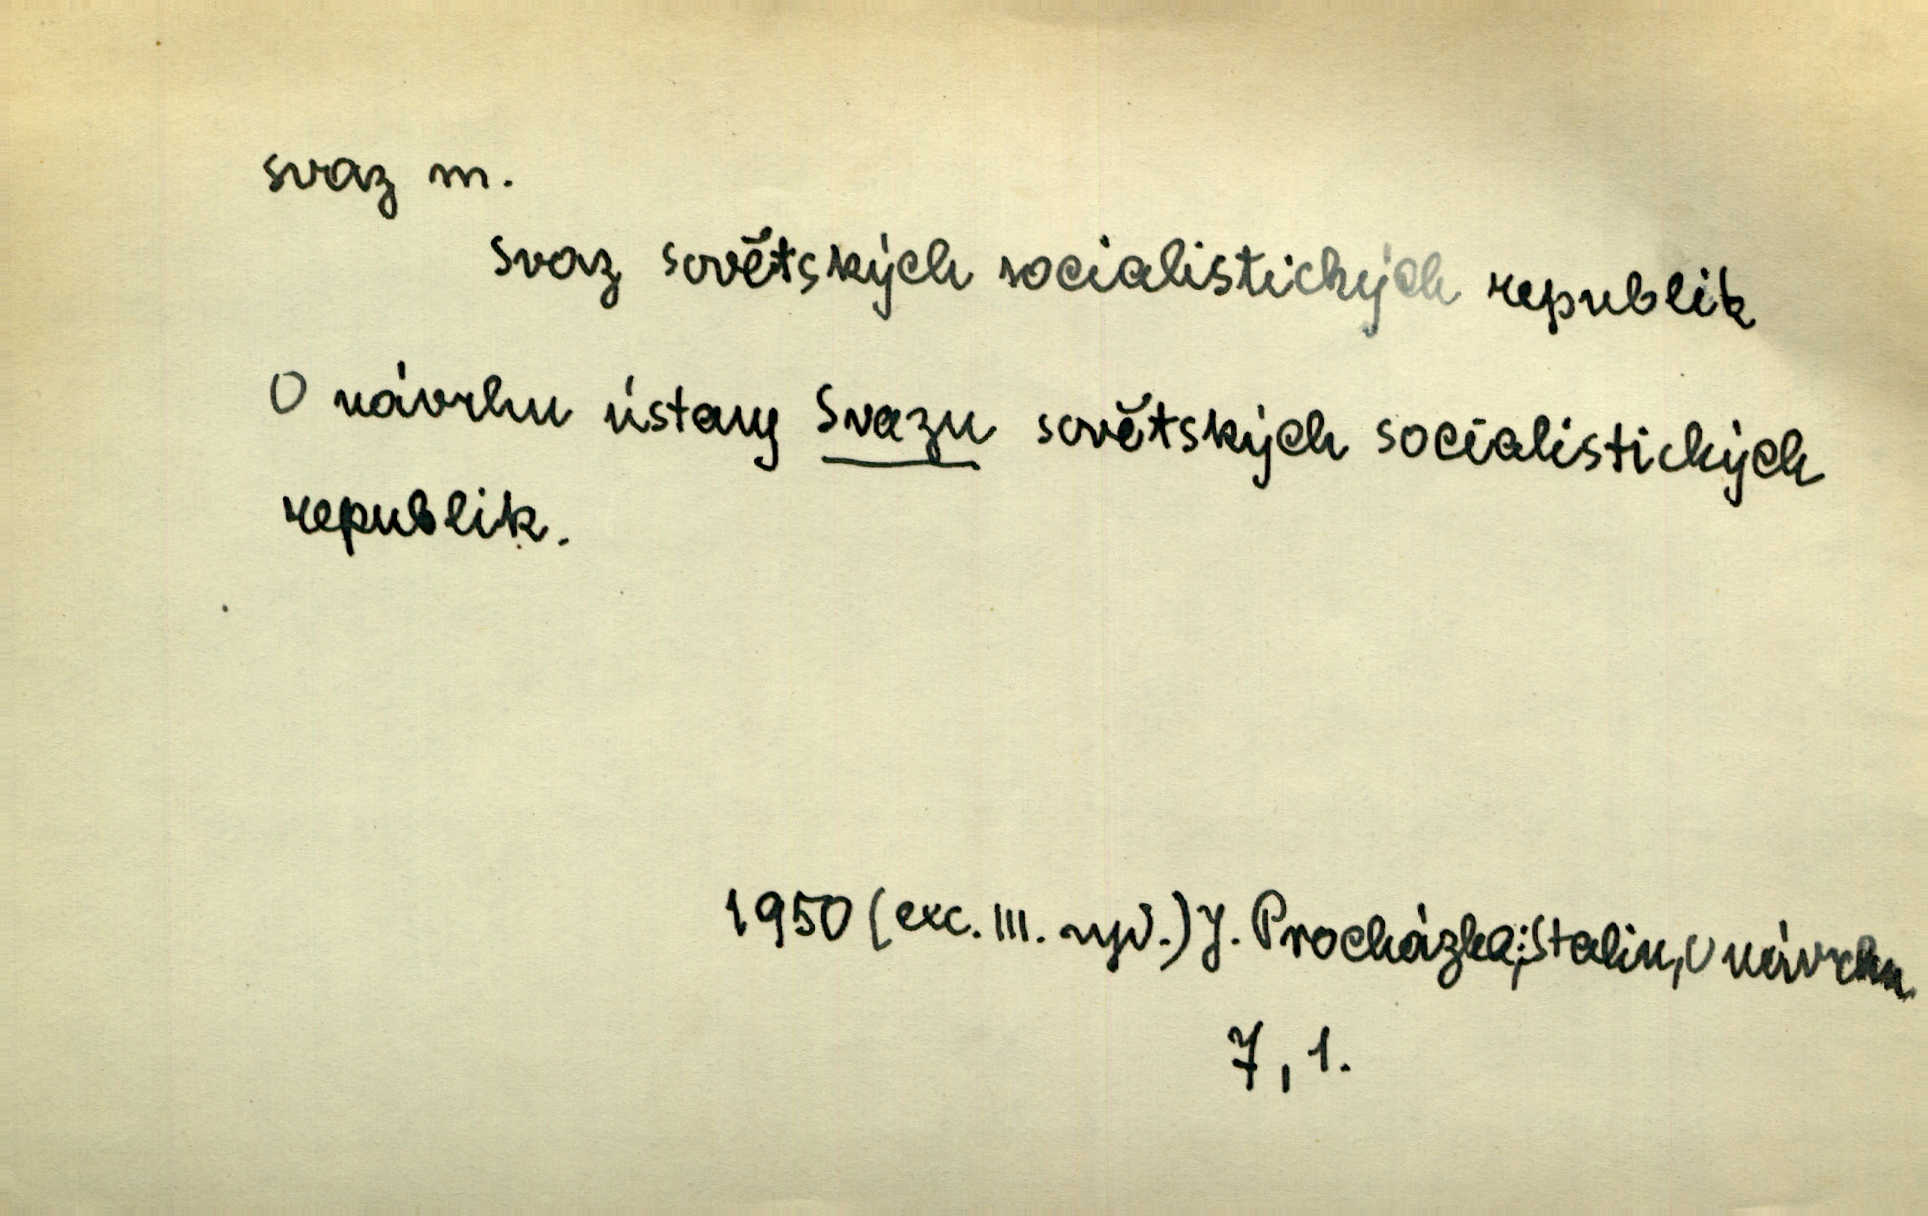 svaz m.
Svaz sovětských socialistických republik
O návrhu ústavy Svazu sovětských socialistických
republik.
1950 (exc. III. vyd.) J. Procházka; Stalin, O návrhu
7, 1.